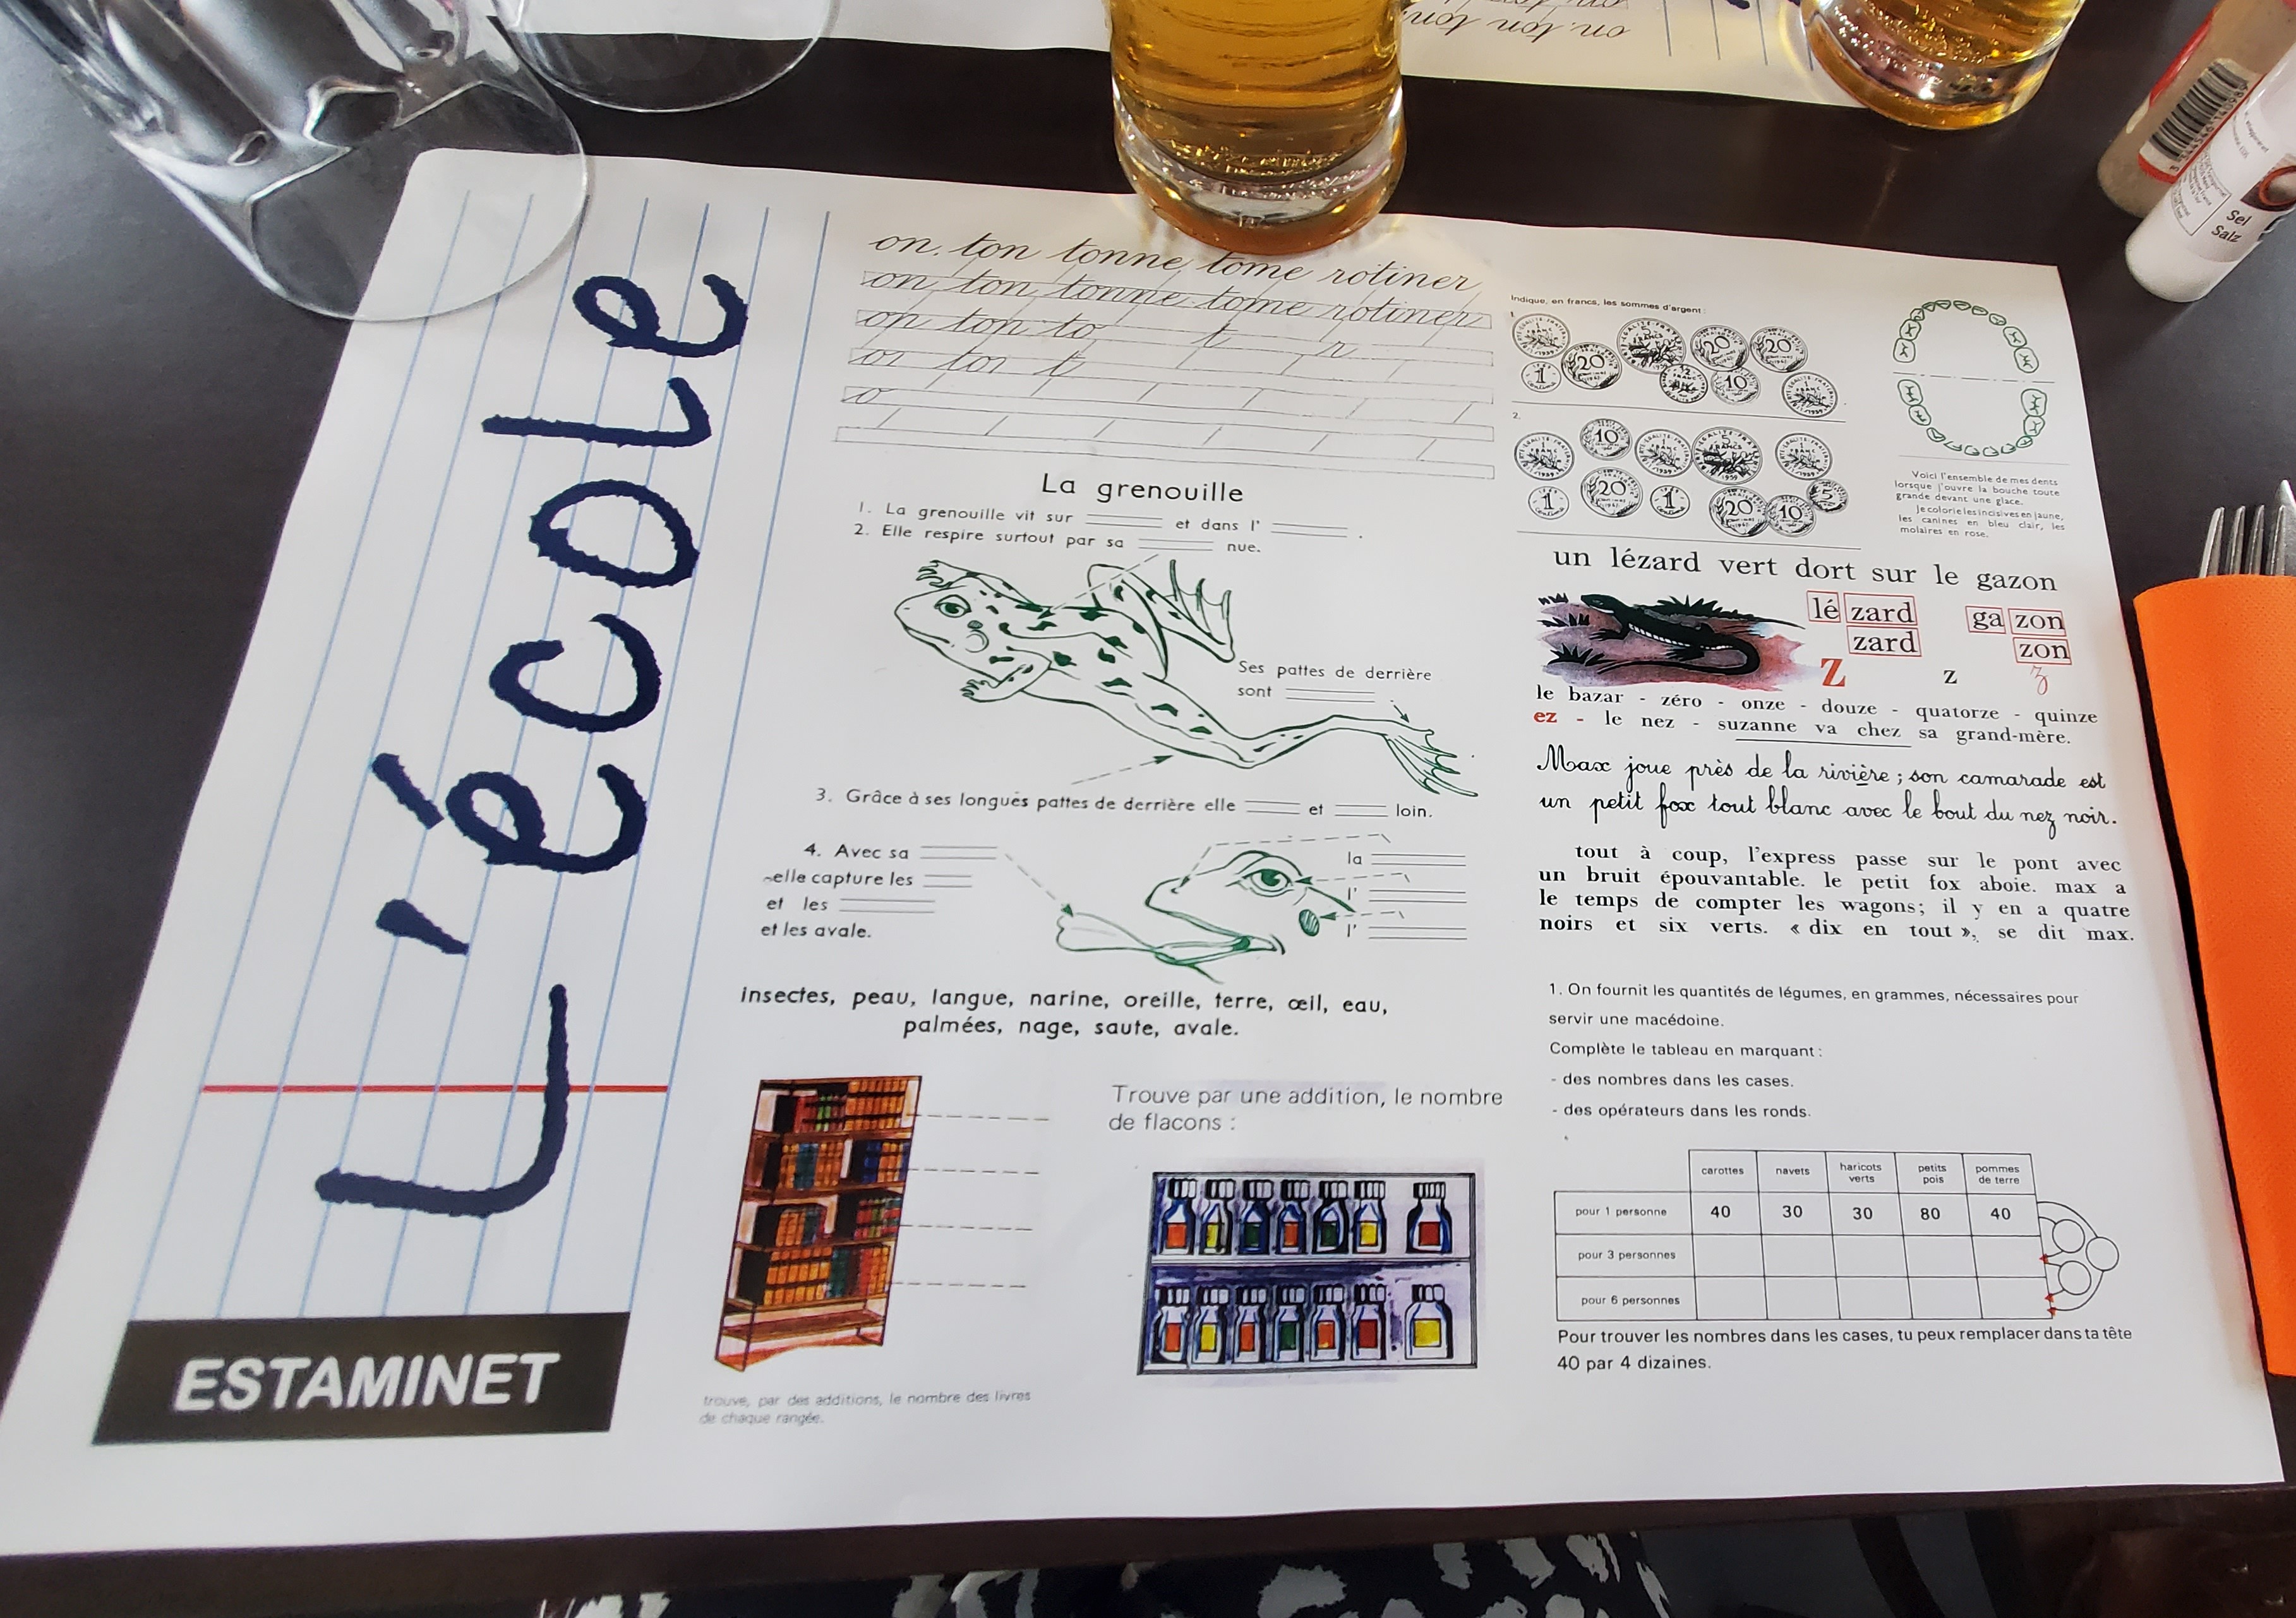 L'école
ESTAMINET
on ton tonne tome rotiner
on ton tonne tome rotiner
on ton to t r
on ton t
o
La grenouille
1. La grenouille vit sur et dans l' .
2. Elle respire surtout par sa nue.
Ses pattes de derrière
sont
3. Grâce à ses longues pattes de derrière elle et loin.
4. Avec sa
elle capture les
et les
et les avale.
la
l'
l'
insectes, peau, langue, narine, oreille, terre, œil, eau,
palmées, nage, saute, avale.
trouve, par des additions, le nombre des livres
de chaque rangée.
Trouve par une addition, le nombre
de flacons :
Indique, en francs, les sommes d'argent :
1.
20
5
20
20
1
10
2.
10
5
1
20
1
20
10
5
Voici l'ensemble de mes dents
lorsque j'ouvre la bouche toute
grande devant une glace.
Je colorie les incisives en jaune,
les canines en bleu clair, les
molaires en rose.
un lézard vert dort sur le gazon
lé zard ga zon
zard zon
z z z
le bazar - zéro - onze - douze - quatorze - quinze
ez - le nez - suzanne va chez sa grand-mère.
Max joue près de la rivière ; son camarade est
un petit fox tout blanc avec le bout du nez noir.
tout à coup, l'express passe sur le pont avec
un bruit épouvantable. le petit fox aboie. max a
le temps de compter les wagons; il y en a quatre
noirs et six verts. « dix en tout », se dit max.
1. On fournit les quantités de légumes, en grammes, nécessaires pour
servir une macédoine.
Complète le tableau en marquant :
- des nombres dans les cases.
- des opérateurs dans les ronds.
carottes navets haricots verts petits pois pommes de terre
pour 1 personne 40 30 30 80 40
pour 3 personnes
pour 6 personnes
Pour trouver les nombres dans les cases, tu peux remplacer dans ta tête
40 par 4 dizaines.
Sel
Salz